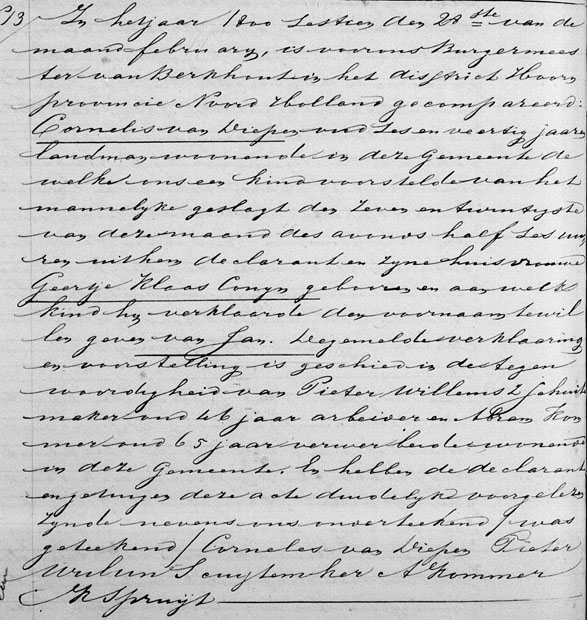 13 In het jaar 1800 sestien den 28 ste van de
maand february, is voor ons Burgermees
ter van Berkhout in het district Hoorn
provincie Noord Holland gecompareerd:
Cornelis van Diepen oud ses en veertig jaaren
landman woonende in deze Gemeente de
welke ons een kind voorstelde van het
mannelyke geslagt den zeven en twintigste
van deze maand des avonds half ses uu
ren uit hem declarant en zyne huisvrouwe
Geertje Klaas Conyn gebooren en aan welk
kind hy verklaarde den voornaam te wil
len geven van Jan. De gemelde verklaaring
en voorstelling is geschied in de tegen
woordigheid van Pieter Willemsz Schuite
maker oud 46 jaar arbeider en Adran Kom
mer oud 65 jaar verwer beide woonende
in deze Gemeente. En hebben de declarant
en getuigen deze acte duidelyk voorgelezen
zynde nevens ons onderteekend / was
geteekend / Cornelis van Diepen Pieter
Wilmn Scuytemker A Kommer
K Spruyt